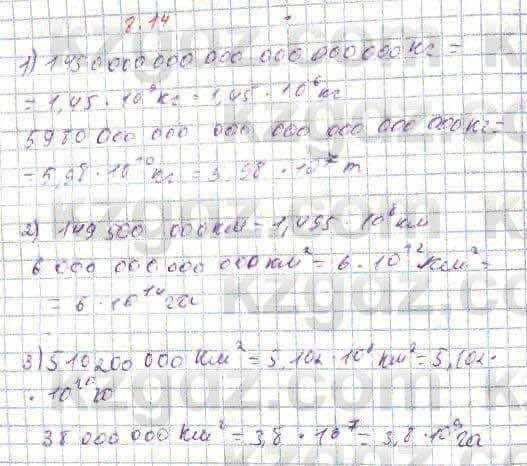 8.14
1) 1450 000 000 000 000 000 000 кг =
= 1,45 · 10⁹ кг = 1,45 · 10⁶ кг
5980 000 000 000 000 000 000 000 кг =
= 5,98 · 10 кг = 5,98 · 10 т
2) 149 500 000 км = 1,495 · 10⁸ км
6 000 000 000 000 км² = 6 · 10¹² км² =
= 6 · 10¹⁴ га
3) 510200 000 км² = 5,102 · 10⁸ км² = 5,102 ·
· 10¹⁰ га
38 000 000 км² = 3,8 · 10⁷ = 3,8 · 10⁹ га
kzgdz.com